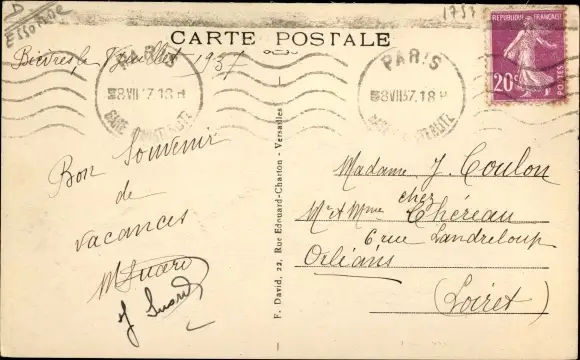 D
Essonne
CARTE POSTALE
Bièvres, le 8 Juillet 1937
PARIS
8 VII 37. 18 H
PARIS
8 VII 37. 18 H
REPUBLIQUE FRANÇAISE
20c
Bon Souvenir
de
vacances
J Suard
F. David, 22, Rue Edouard-Charton - Versailles
Madame J. Coulon
chez
Mr et Mme Théreau
6 rue Landreloup
Orléans
(Loiret)